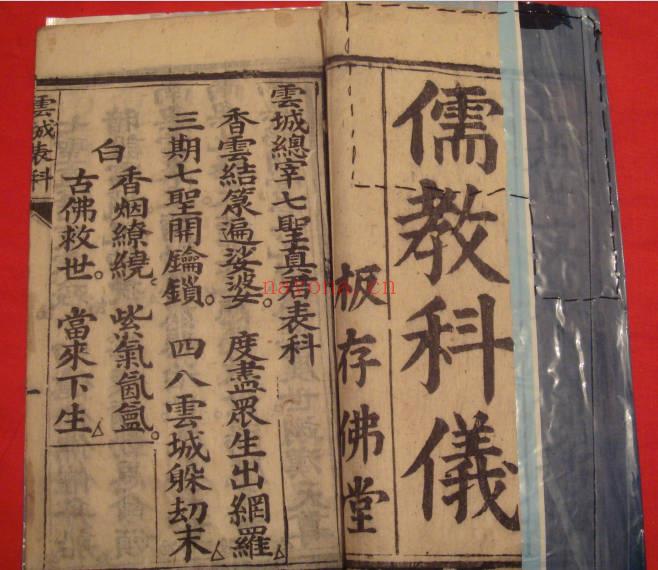 儒教科儀
板存佛堂
雲城總宰七聖真君表科
香雲結篆遍娑婆。度盡眾生出網羅
三期七聖開鑰鎖。四八雲城躲刼末
白
香烟繚繞。紫氣氤氳。
古佛救世。當來下生
雲城表科
nayona.cn